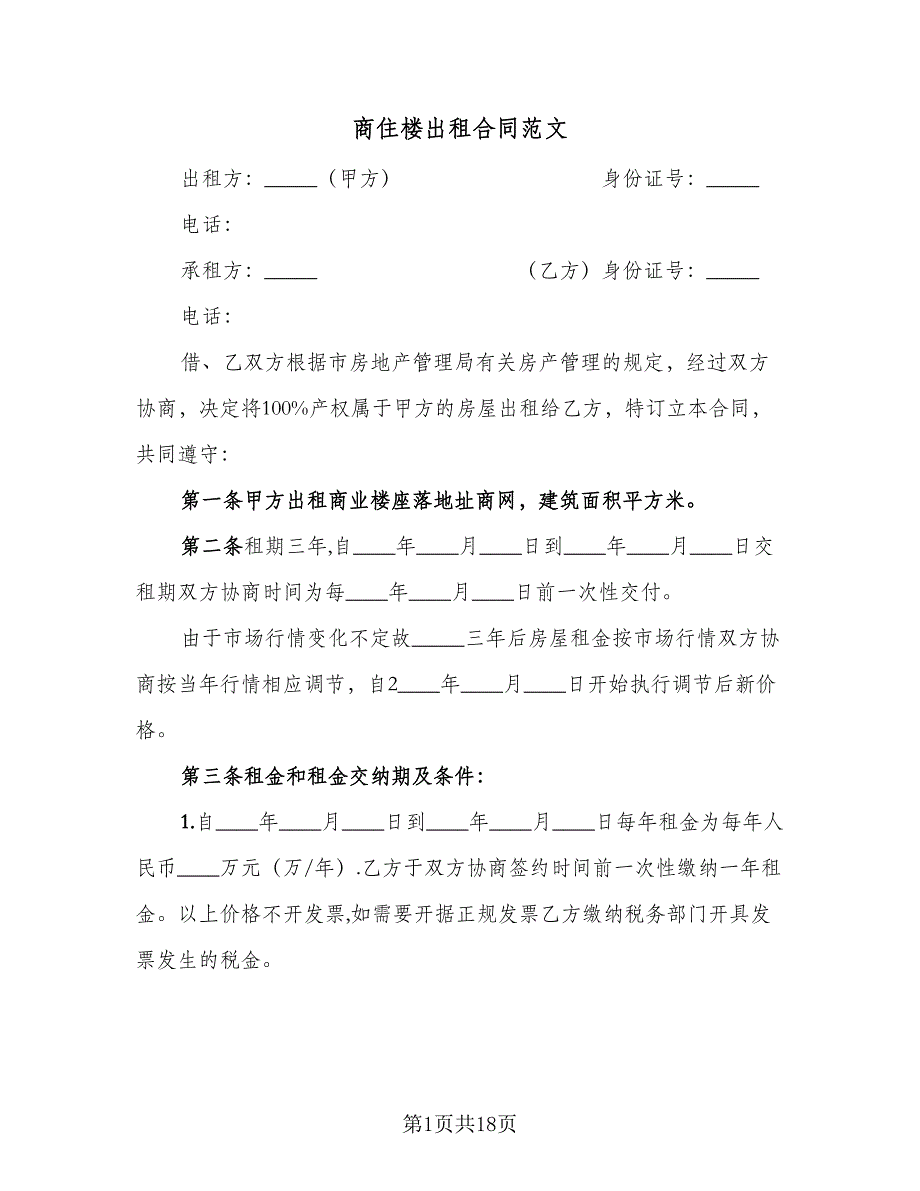 商住楼出租合同范文
出租方：_____（甲方） 身份证号：_____
电话：
承租方：_____ （乙方）身份证号：_____
电话：
借、乙双方根据市房地产管理局有关房产管理的规定，经过双方
协商，决定将100%产权属于甲方的房屋出租给乙方，特订立本合同，
共同遵守：
第一条甲方出租商业楼座落地址商网，建筑面积平方米。
第二条租期三年,自____年____月____日到____年____月____日交
租期双方协商时间为每____年____月____日前一次性交付。
由于市场行情变化不定故_____三年后房屋租金按市场行情双方协
商按当年行情相应调节，自2____年____月____日开始执行调节后新价
格。
第三条租金和租金交纳期及条件：
1.自____年____月____日到____年____月____日每年租金为每年人
民币____万元（万/年）.乙方于双方协商签约时间前一次性缴纳一年租
金。以上价格不开发票,如需要开据正规发票乙方缴纳税务部门开具发
票发生的税金。
第1页共18页